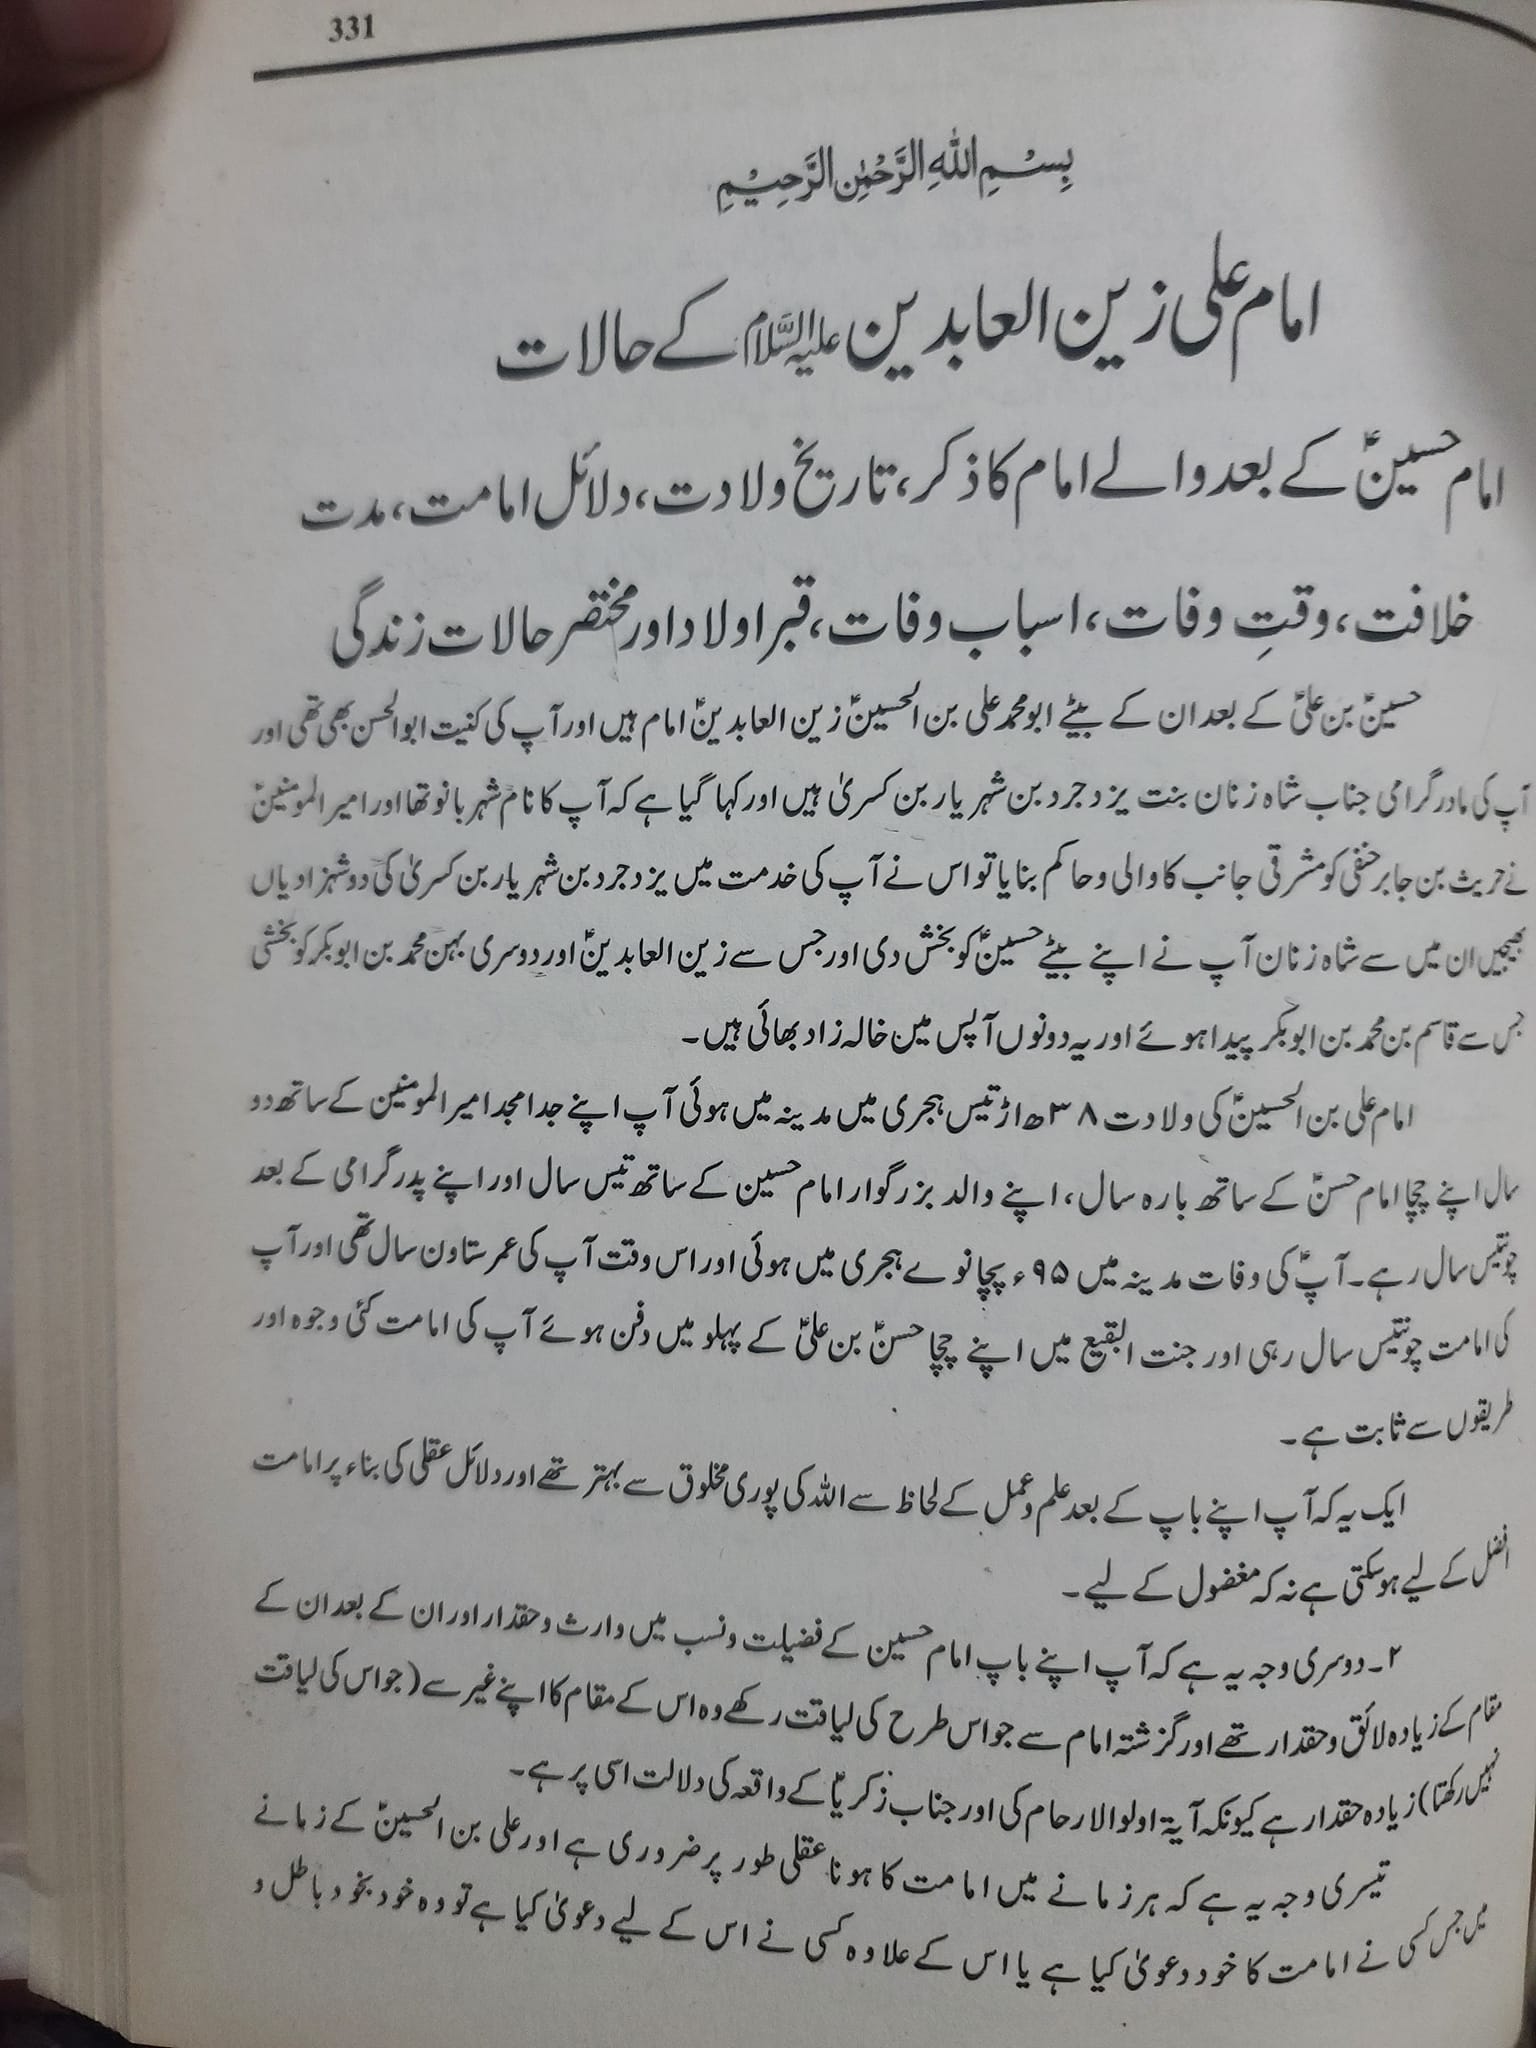 331
بِسْمِ اللهِ الرَّحْمٰنِ الرَّحِيْمِ
امام علی زین العابدین علیہ السّلام کے حالات
امام حسینؑ کے بعد والے امام کا ذکر، تاریخ ولادت، دلائل امامت، مدت
خلافت، وقتِ وفات، اسباب وفات، قبر اولاد اور مختصر حالات زندگی
حسینؑ بن علیؑ کے بعد ان کے بیٹے ابو محمد علی بن الحسینؑ زین العابدینؑ امام ہیں اور آپ کی کنیت ابوالحسن بھی تھی اور
آپ کی مادر گرامی جناب شاہ زنان بنت یزدجرد بن شہریار بن کسریٰ ہیں اور کہا گیا ہے کہ آپ کا نام شہر بانو تھا اور امیر المومنینؑ
نے حریث بن جابر حنفی کو مشرقی جانب کا والی و حاکم بنایا تو اس نے آپ کی خدمت میں یزدجرد بن شہریار بن کسریٰ کی دو شہزادیاں
بھیجیں ان میں سے شاہ زنان آپ نے اپنے بیٹے حسینؑ کو بخش دی اور جس سے زین العابدینؑ اور دوسری بہن محمد بن ابوبکر کو بخشی
جس سے قاسم بن محمد بن ابوبکر پیدا ہوئے اور یہ دونوں آپس مین خالہ زاد بھائی ہیں۔
امام علی بن الحسینؑ کی ولادت ۳۸ھ اڑتیس ہجری میں مدینہ میں ہوئی آپ اپنے جد امجد امیر المومنین کے ساتھ دو
سال اپنے چچا امام حسنؑ کے ساتھ بارہ سال، اپنے والد بزرگوار امام حسین کے ساتھ تیس سال اور اپنے پدر گرامی کے بعد
چونتیس سال رہے۔ آپؑ کی وفات مدینہ میں ۹۵ء پچانوے ہجری میں ہوئی اور اس وقت آپ کی عمر ستاون سال تھی اور آپ
کی امامت چونتیس سال رہی اور جنت البقیع میں اپنے چچا حسنؑ بن علیؑ کے پہلو میں دفن ہوئے آپ کی امامت کئی وجوہ اور
طریقوں سے ثابت ہے۔
ایک یہ کہ آپ اپنے باپ کے بعد علم و عمل کے لحاظ سے اللہ کی پوری مخلوق سے بہتر تھے اور دلائل عقلی کی بناء پر امامت
افضل کے لیے ہو سکتی ہے نہ کہ مفضول کے لیے۔
۲۔ دوسری وجہ یہ ہے کہ آپ اپنے باپ امام حسین کے فضیلت و نسب میں وارث و حقدار اور ان کے بعد ان کے
مقام کے زیادہ لائق و حقدار تھے اور گزشتہ امام سے جو اس طرح کی لیاقت رکھے وہ اس کے مقام کا اپنے غیر سے (جو اس کی لیاقت
نہیں رکھتا) زیادہ حقدار ہے کیونکہ آیۃ اولوالارحام کی اور جناب زکریاؑ کے واقعہ کی دلالت اسی پر ہے۔
تیسری وجہ یہ ہے کہ ہر زمانے میں امامت کا ہونا عقلی طور پر ضروری ہے اور علی بن الحسینؑ کے زمانے
میں جس کسی نے امامت کا خود دعویٰ کیا ہے یا اس کے علاوہ کسی نے اس کے لیے دعویٰ کیا ہے تو وہ خود بخود باطل و